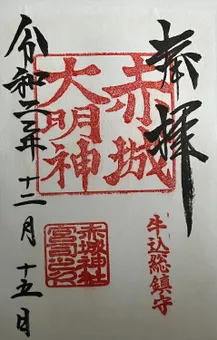 奉拝
赤城
大明神
牛込総鎮守
赤城神社
宮司之印
令和二年十二月十五日